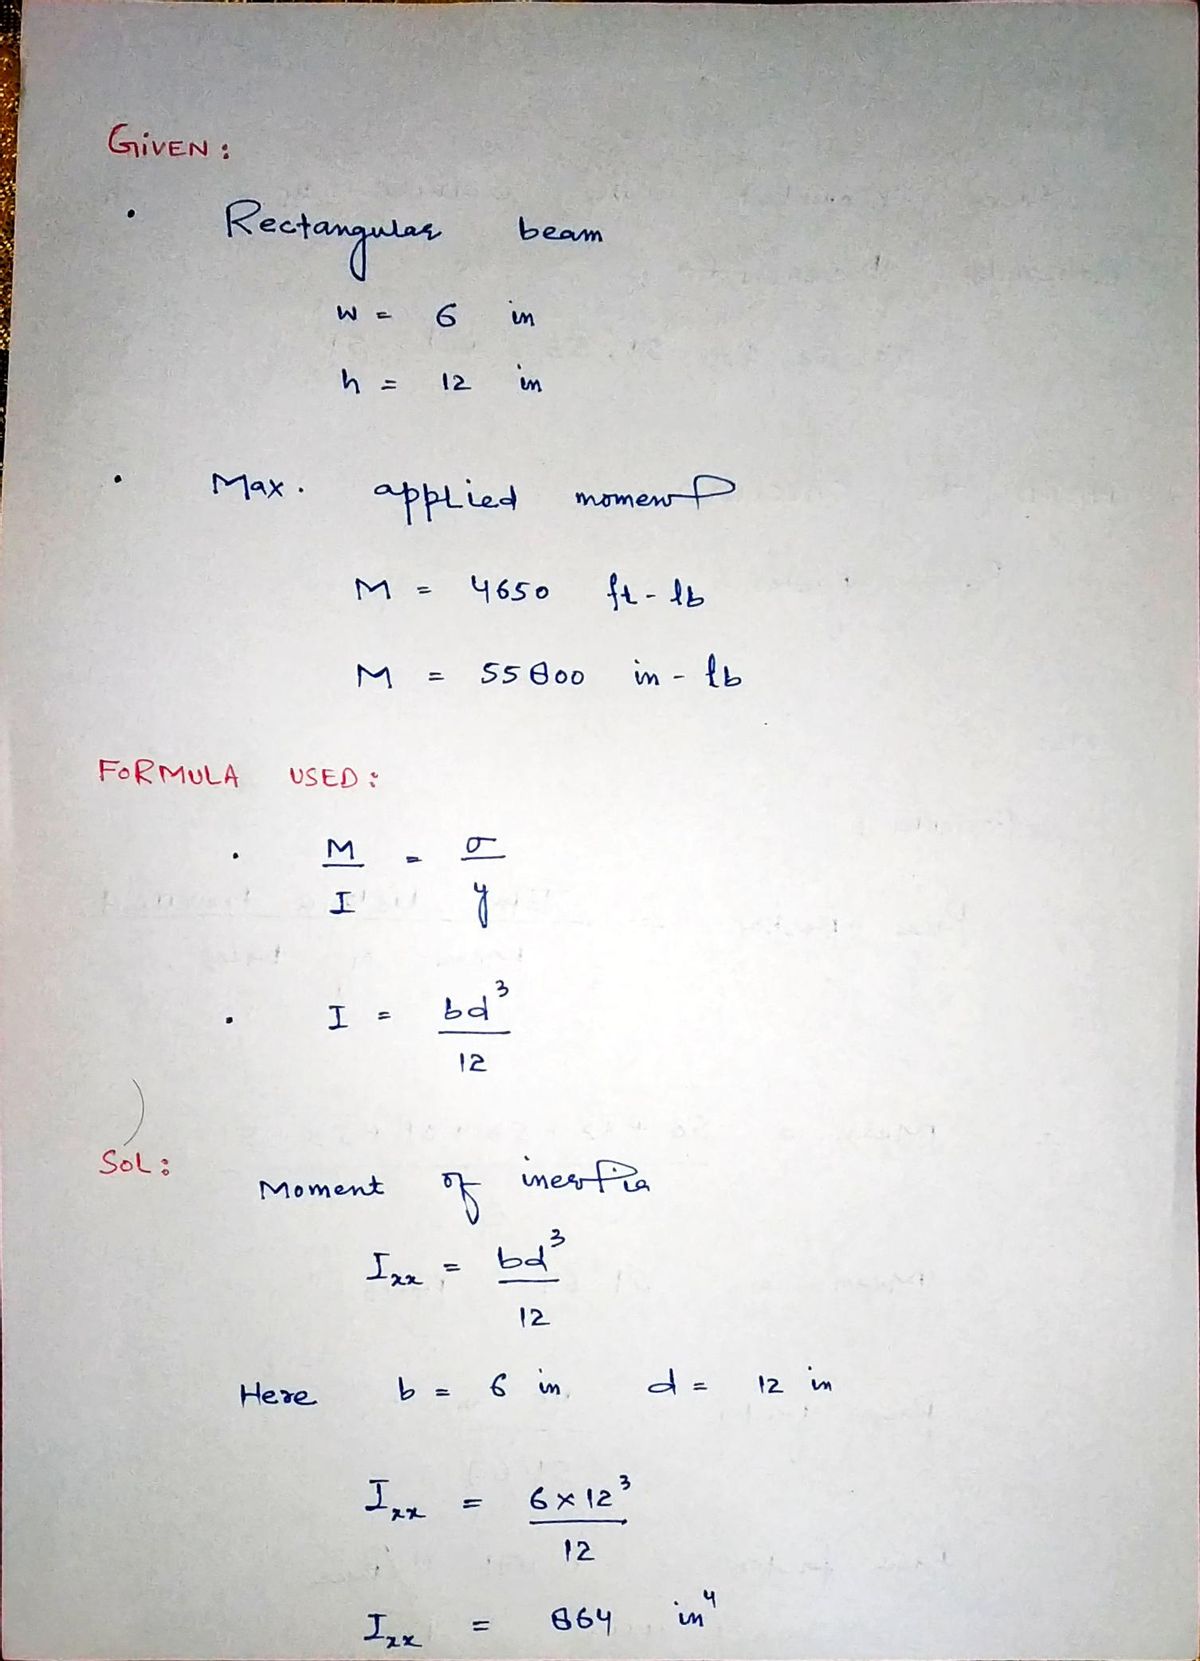 GIVEN:
• Rectangular beam
w = 6 in
h = 12 in
• Max. applied moment
M = 4650 ft-lb
M = 55800 in-lb
FORMULA USED:
• M/I = σ/y
• I = bd³/12
SOL:
Moment of inertia
Ixx = bd³/12
Here b = 6 in, d = 12 in
Ixx = 6×12³/12
Ixx = 864 in⁴